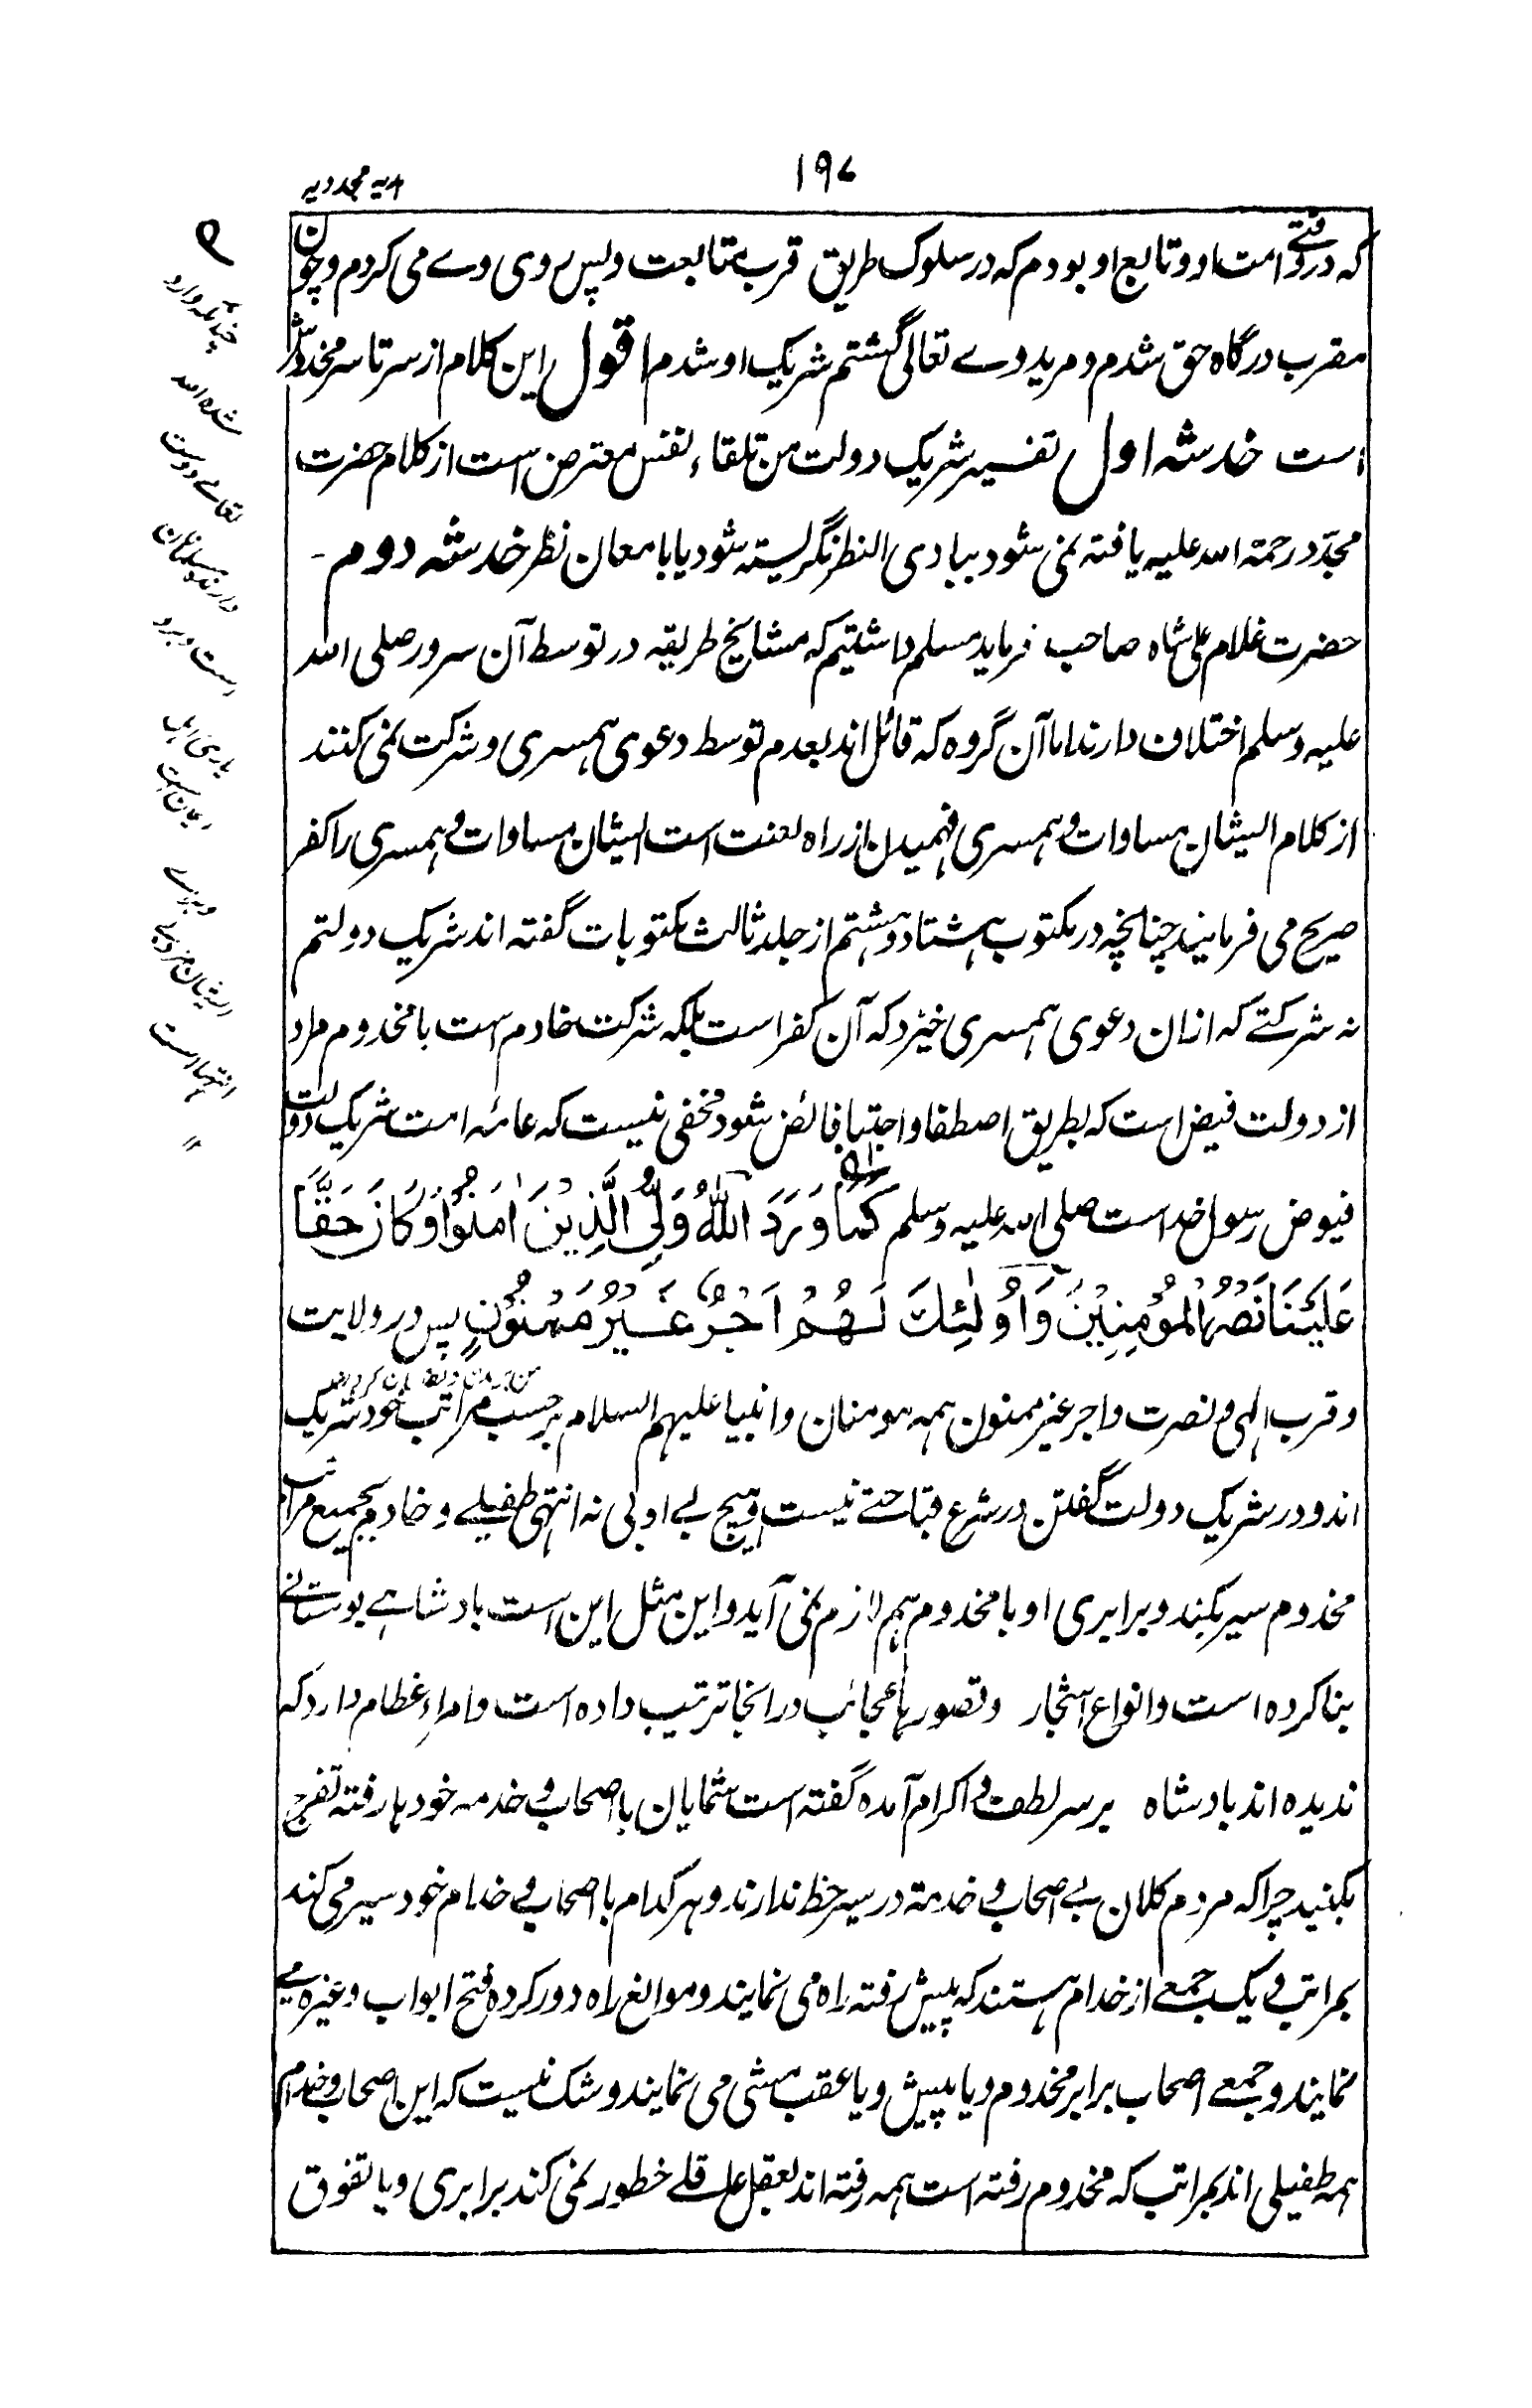 ۱۹۷
ہدیہ مجددیہ
که در وقتے امت او و تابع او بودم که در سلوک طریق قرب متابعت و پس روی وے می کردم و چون
مقرب درگاه حق شدم و مرید وے تعالی گشتم شریک او شدم اقول این کلام از سر تا سر مخدوش
است خدشه اول تفسیر شریک دولت من تلقاء نفس معترض است از کلام حضرت
مجدّد رحمة الله علیه یافته نمی شود ببادی النظر نگریسته شود یا بامعان نظر خدشه دوم -
حضرت غلام علی شاه صاحب فرماید مسلم داشتیم که مشایخ طریقه در توسط آن سرور صلی الله
علیه وسلم اختلاف دارند اما آن گروه که قائل اند بعدم توسط دعوی همسری و شرکت نمی کنند
از کلام ایشان مساوات و همسری فهمیدن از راه لعنت است ایشان مساوات و همسری را کفر
صریح می فرمایند چنانچه در مکتوب هشتاد و هشتم از جلد ثالث مکتوبات گفته اند شریک دولتم
نه شرکتے که ازان دعوی همسری خیزد که آن کفر است بلکه شرکت خادم است با مخدوم مراد
از دولت فیض است که بطریق اصطفا و اجتبا فائض شود و مخفی نیست که عامه امت شریک دولت
فیوض رسول خداست صلی الله علیه وسلم کَمَا وَرَدَ اَللّٰهُ وَلِیُّ الَّذِیْنَ اٰمَنُوْا وَکَانَ حَقًّا
عَلَیْنَا نَصْرُ الْمُؤْمِنِیْنَ وَاُولٰئِكَ لَهُمْ اَجْرٌ غَیْرُ مَمْنُوْنٍ پس در ولایت
و قرب الهی و نصرت و اجر غیر ممنون همه مومنان و انبیا علیهم السلام بر حسب مراتب خود شریک
اند و در شریک دولت گفتن در شرع قباحتے نیست و هیچ بے ادبی نه انتهی طفیلے و خادم بجمیع مراتب
مخدوم سیر بکند و برابری او با مخدوم هم لازم نمی آید و این مثل این است بادشاهے بوستانے
بنا کرده است و انواع اشجار و تصویرها عجائب در انجا ترتیب داده است و امراءِ عظام دارد که
ندیده اند بادشاه برسر لطف و اکرام آمده گفته است شمایان با اصحاب و خدمه خودها رفته تفرج
بکنید چرا که مردم کلان بے اصحاب و خدمة در سیر حظ ندارند و هر کدام با اصحاب و خدام خود سیر می کند
بمراتب و یک جمعے از خدام هستند که پیش رفته راه می نمایند و موانع راه دور کرده فتح ابواب و غیره مے
نمایند و جمعے اصحاب برابر مخدوم و یا پیش و یا عقب مشی می نمایند و شک نیست که این اصحاب و خدام
همه طفیلی اند بمراتب که مخدوم رفته است همه رفته اند بعقل عاقلے خطور نمی کند برابری و یا تفوق
چنانکه وارد
شده الله
تعالے دوست
دارنده مسلمانان
است و برد
یاری اہل
ایمان است
و براے
ایشان مزد بے
انتہا است
۱۲